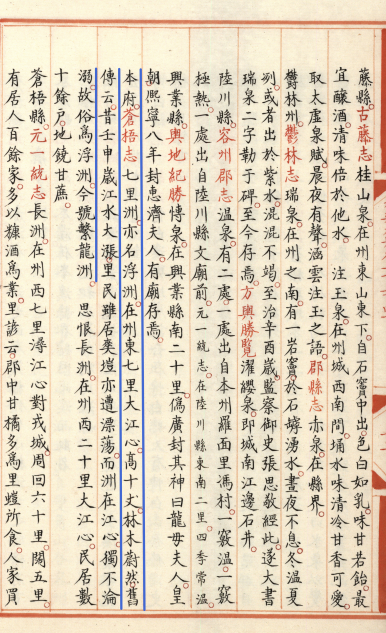 藤縣古藤志桂山泉在州東山東下自石竇中出色白如乳味甘若飴最
宜釀酒清味倍於他水　注玉泉在州城西南間埇水味清冷甘香可愛
取太虛泉賦晨夜有聲涵雲注玉之語郡縣志亦泉在縣界
鬱林州鬱林志瑞泉在州之南有一岩竇於石罅湧水晝夜不息冬溫夏
冽或者出於紫水混混不竭至治辛酉歲監察御史張思敬經此遂大書
瑞泉二字勒于碑至今存焉方輿勝覽濯纓泉即城南江邊石井
陸川縣容州郡志溫泉有二處一處出自本州羅面里馮村一竅溫一竅
極熱一處出自陸川縣文廟前元一統志在陸川縣東南二里四季常溫
興業縣輿地紀勝博泉在興業縣南二十里僞廣封其神曰龍母夫人皇
朝熙寧八年封惠濟夫人有廟存焉
本府蒼梧志七里洲亦名浮洲在州東七里大江心高十丈林木蔚然舊
傳云昔壬申歲江水大漲里民雖居巢塏亦遭漂蕩而洲在江心獨不淪
溺故俗爲浮洲今號繫龍洲　思恨長洲在州西二十里大江心民居數
十餘戶地饒甘蔗
蒼梧縣元一統志長洲在州西七里潯江心對戎城周回六十里闊五里
有居人百餘家多以糠酒爲業里諺云郡中甘橘多爲里螘所食人家買